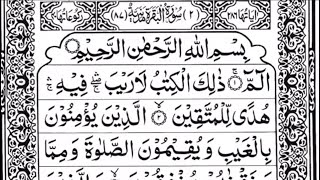 اٰیَاتُهَا ٢٨٦ (٢) سُوْرَةُ الْبَقَرَةِ مَدَنِیَّةٌ (٨٧) رُكُوْعَاتُهَا
بِسْمِ اللّٰهِ الرَّحْمٰنِ الرَّحِیْمِ
الٓمّٓ ١ ذٰلِكَ الْكِتٰبُ لَا رَیْبَ فِیْهِ
هُدًی لِّلْمُتَّقِیْنَ ٢ الَّذِیْنَ یُؤْمِنُوْنَ
بِالْغَیْبِ وَیُقِیْمُوْنَ الصَّلٰوةَ وَمِمَّا